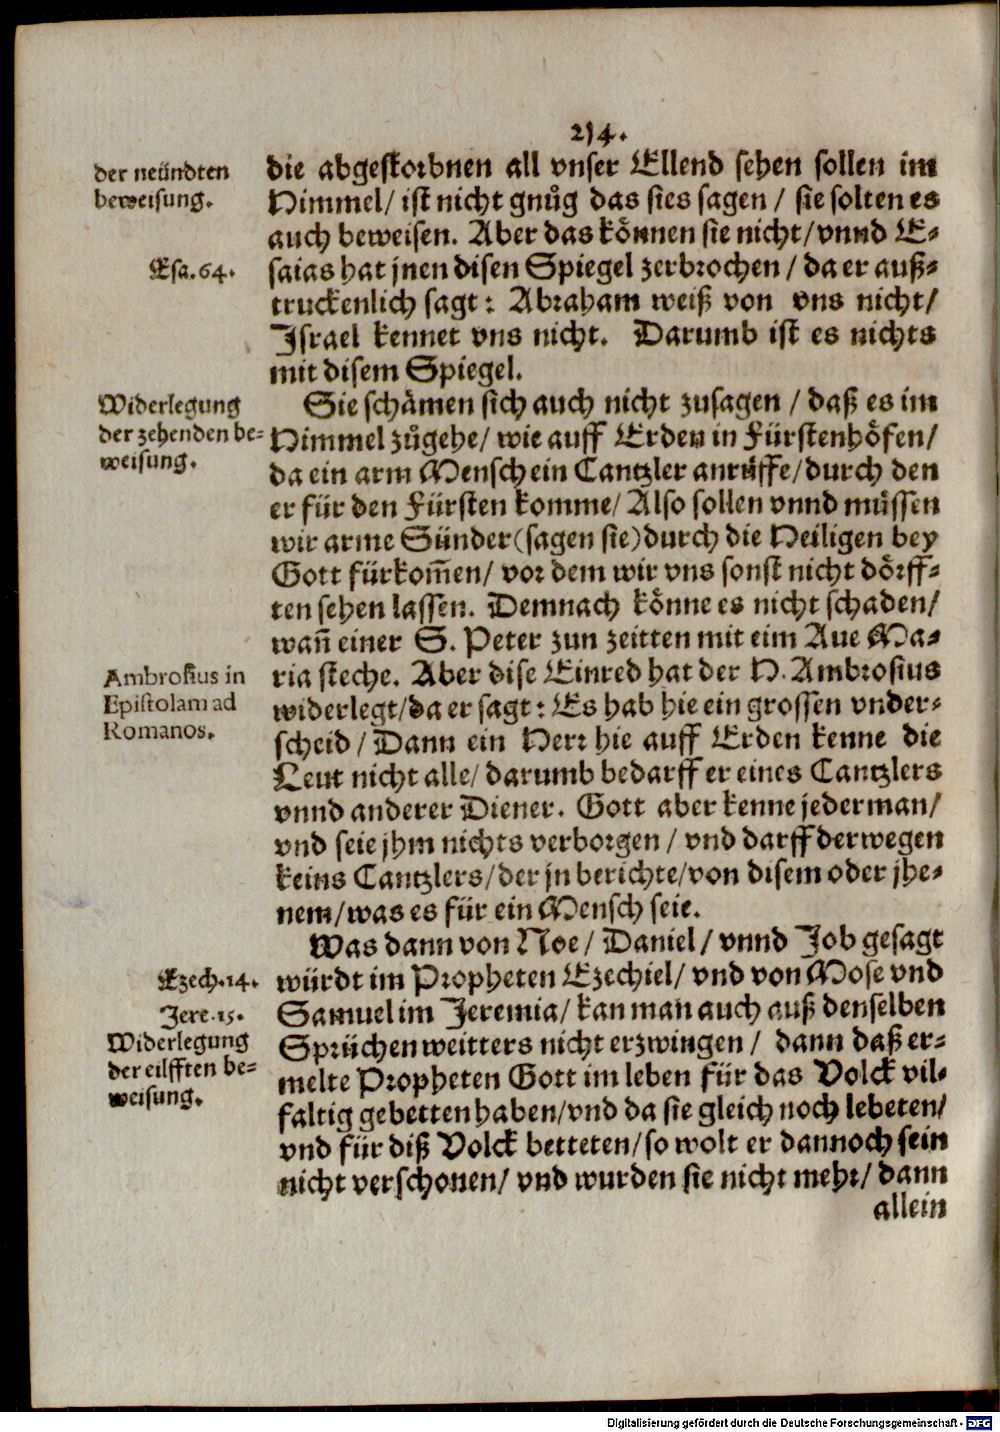 214.
der neündten
beweisung.
die abgestorbnen all vnser Ellend sehen sollen im
Himmel/ ist nicht gnůg das sies sagen / sie solten es
auch beweisen. Aber das können sie nicht/vnnd E-
Esa.64.
saias hat jnen disen Spiegel zerbrochen / da er auß-
truckenlich sagt: Abraham weiß von vns nicht/
Israel kennet vns nicht. Darumb ist es nichts
mit disem Spiegel.
Widerlegung
der zehenden be-
weisung.
Sie schämen sich auch nicht zusagen / daß es im
Himmel zůgehe/ wie auff Erden in Fürstenhöfen/
da ein arm Mensch ein Cantzler anrüffe/durch den
er für den Fürsten komme/ Also sollen vnnd müssen
wir arme Sünder(sagen sie)durch die Heiligen bey
Gott fürkom̃en/ vor dem wir vns sonst nicht dörff-
ten sehen lassen. Demnach könne es nicht schaden/
wan̄ einer S. Peter zun zeitten mit eim Aue Ma-
Ambrosius in
Epistolam ad
Romanos.
ria steche. Aber dise Einred hat der H. Ambrosius
widerlegt/da er sagt: Es hab hie ein grossen vnder-
scheid / Dann ein Herr hie auff Erden kenne die
Leut nicht alle/ darumb bedarff er eines Cantzlers
vnnd anderer Diener. Gott aber kenne jederman/
vnd seie jhm nichts verborgen / vnd darff derwegen
keins Cantzlers/der jn berichte/von disem oder jhe-
nem/was es für ein Mensch seie.
Was dann von Noe/ Daniel/ vnnd Job gesagt
Ezech.14.
würdt im Propheten Ezechiel/ vnd von Mose vnd
Jere.15.
Samuel im Jeremia/ kan man auch auß denselben
Widerlegung
der eilfften be-
weisung.
Sprüchen weitters nicht erzwingen / dann daß er-
melte Propheten Gott im leben für das Volck vil-
faltig gebetten haben/vnd da sie gleich noch lebeten/
vnd für diß Volck betteten/so wolt er dannoch sein
nicht verschonen/ vnd wurden sie nicht mehr/ dann
allein
Digitalisierung gefördert durch die Deutsche Forschungsgemeinschaft - DFG